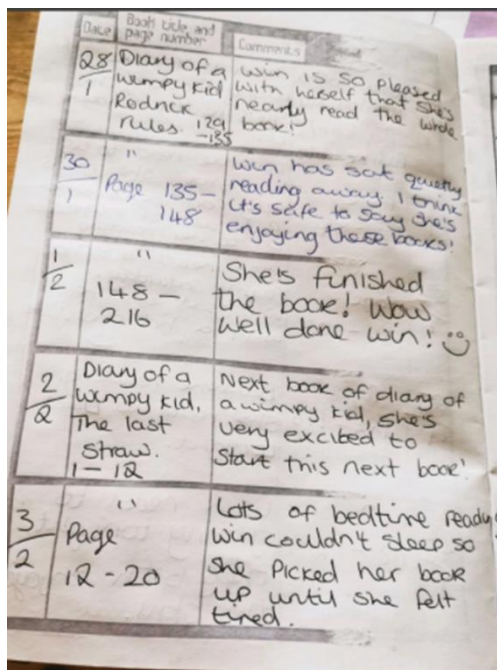 Date
Book title and
page number
Comments
28/1
Diary of a
wimpy kid
Rodrick
rules. 129
-135
win is so pleased
with herself that she's
nearly read the whole
book!
30/1
"
Page 135-
148
win has sat quietly
reading away I think
it's safe to say she's
enjoying these books!
1/2
"
148 -
216
She's finished
the book! Wow
well done win!
2/2
Diary of a
wimpy kid,
The last
straw.
1 - 12
Next book of diary of
a wimpy kid, she's
very excited to
start this next book!
3/2
"
Page
12 - 20
Lots of bedtime
win couldn't sleep so
she picked her book
up until she felt
tired.